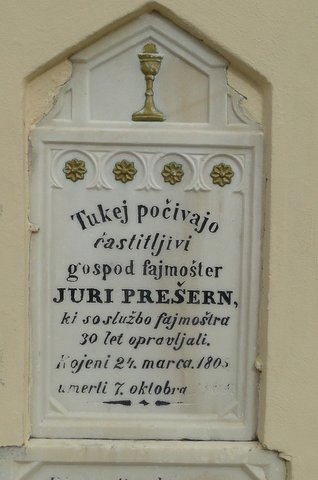 Tukej počivajo
častitljivi
gospod fajmošter
JURI PREŠERN,
ki so službo fajmoštra
30 let opravljali.
Rojeni 24. marca. 1805
umerli 7. oktobra